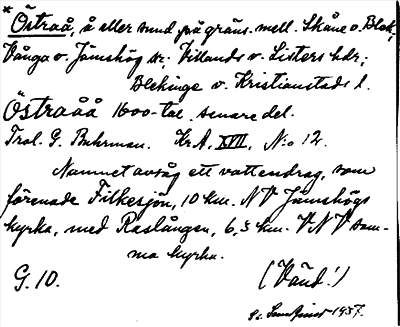 * Östraå, å eller sund på gräns mell. Skåne o. Blek.
Vånga o. Jämshög sr; Villands o. Listers hdr;
Blekinge o. Kristianstads l.
Östraåå 1600-tal, senare del.
Trol. G. Buhrman. Kr A, XVIII, N:o 12.
Namnet avsåg ett vattendrag, som
förenade Filkesjön, 10 km. NV Jämshögs
kyrka, med Raslången, 6,5 km. VNV sam-
ma kyrka.
G. 10. (Vänd!)
1937.